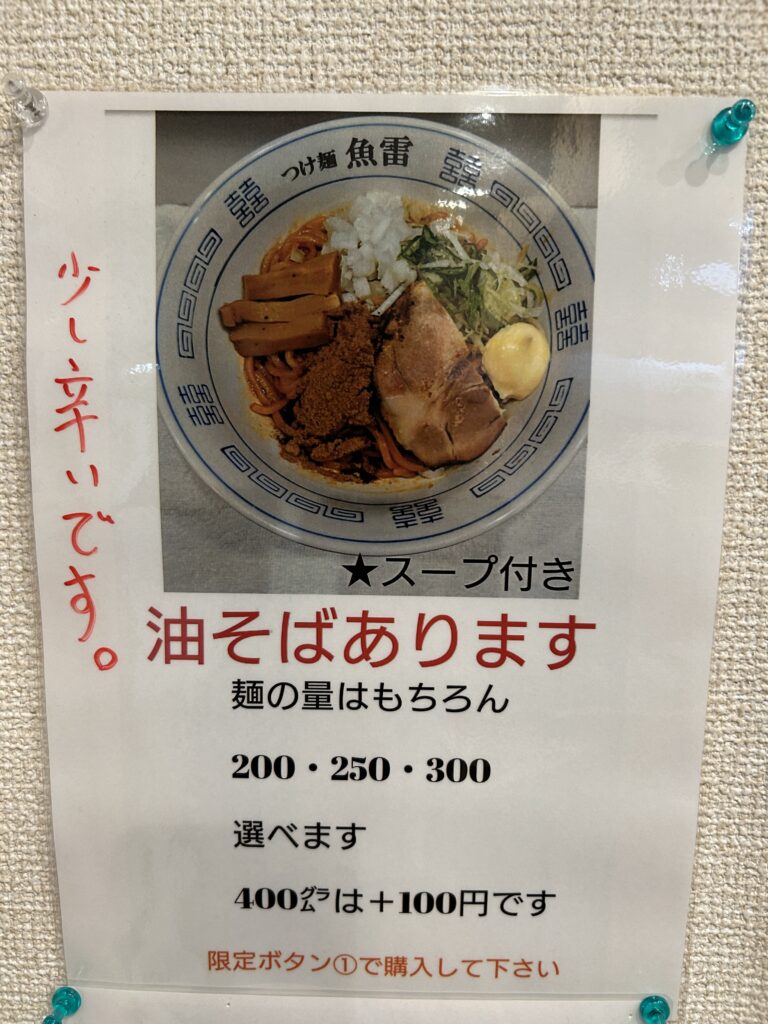 つけ麺 魚雷
少し辛いです。
★スープ付き
油そばあります
麺の量はもちろん
200・250・300
選べます
400㌘は＋100円です
限定ボタン①で購入して下さい